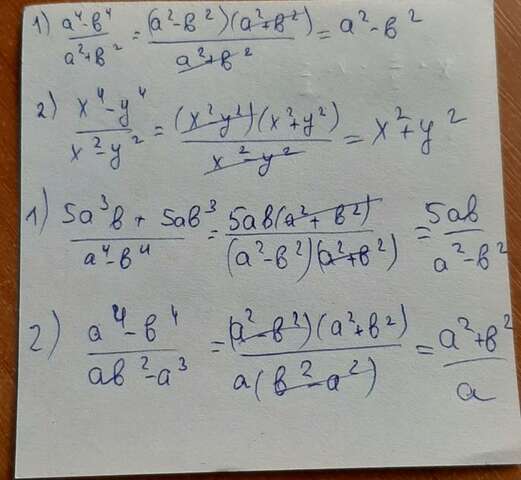 1) (a⁴-b⁴)/(a²+b²) = (a²-b²)(a²+b²)/(a²+b²) = a²-b²
2) (x⁴-y⁴)/(x²-y²) = (x²y²)(x²+y²)/(x²-y²) = x²+y²
1) (5a³b + 5ab³)/(a⁴-b⁴) = 5ab(a²+b²)/(a²-b²)(a²+b²) = 5ab/(a²-b²)
2) (a⁴-b⁴)/(ab²-a³) = (a²-b²)(a²+b²)/a(b²-a²) = (a²+b²)/a